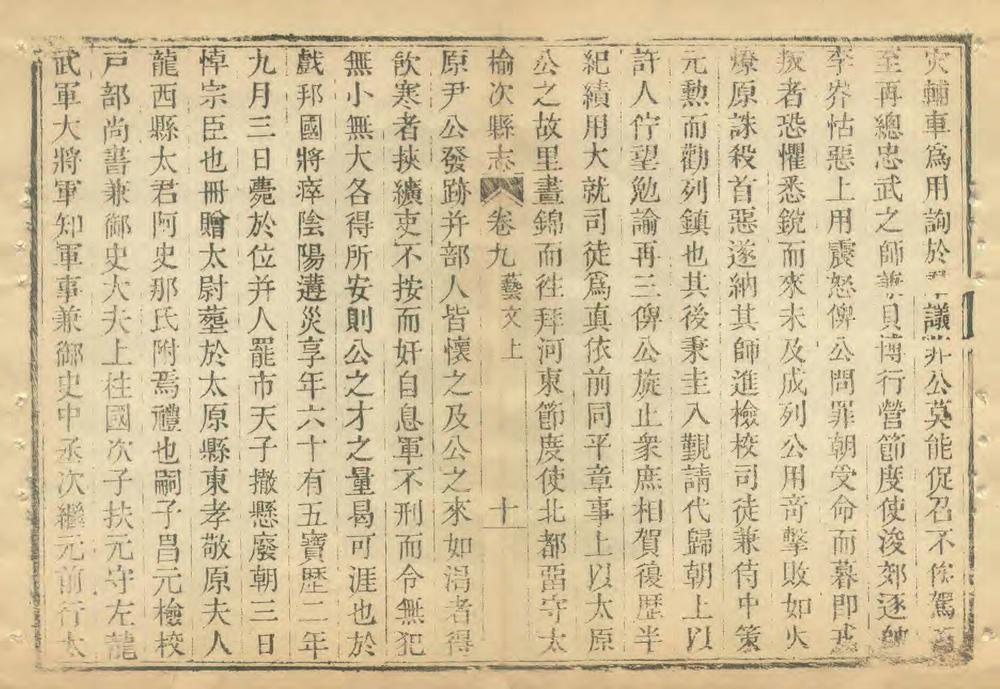 灾輔車爲用詢於議非公莫能促召不俟駕
至再總忠武之師兼貝博行營節度使浚郊逐帥
李岕怙惡上用震怒俾公問罪朝受命而暮即戎
叛者恐懼悉銳而來未及成列公用竒擊敗如火
燎原誅殺首惡遂納其師進檢校司徒兼侍中策
元勲而勸列鎮也其後秉圭入覲請代歸朝上以
許人佇望勉諭再三俾公旋止衆庶相賀復歴半
紀績用大就司徒爲真依前同平章事上以太原
公之故里晝錦而徃拜河東節度使北都畱守太
榆次縣志 卷九 藝文上 十
原尹公發跡并部人皆懷之及公之來如渴者得
飲寒者挾纊吏不按而奸自息軍不刑而令無犯
無小無大各得所安則公之才之量曷可涯也於
戲邦國將瘁陰陽遘災享年六十有五寶歴二年
九月三日薨於位并人罷市天子撤懸廢朝三日
悼宗臣也冊贈太尉塟於太原縣東孝敬原夫人
龍西縣太君阿史那氏附焉禮也嗣子昌元檢校
戸部尚書兼御史大夫上柱國次子扶元守左龍
武軍大將軍知軍事兼御史中丞次繼元前行太